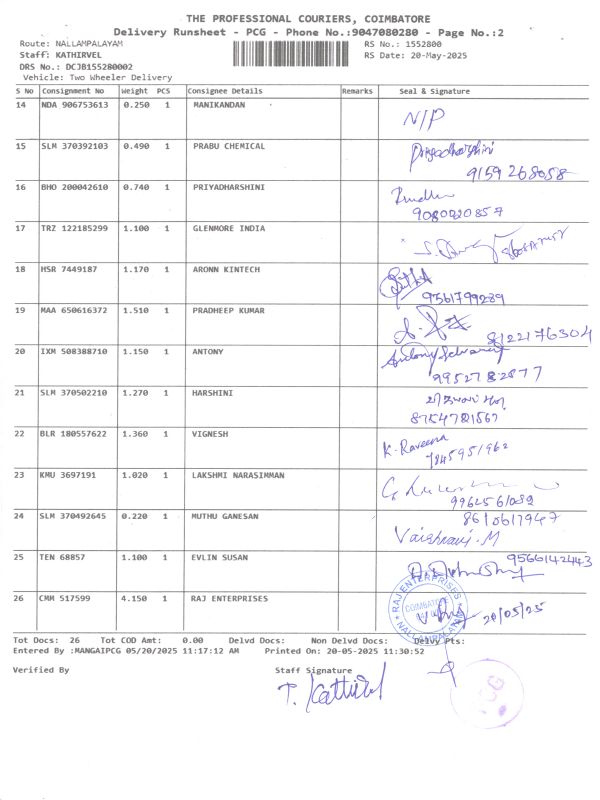 THE PROFESSIONAL COURIERS, COIMBATORE
Delivery Runsheet - PCG - Phone No.:9047080280 - Page No.:2
Route: NALLAMPALAYAM RS No.: 1552800
Staff: KATHIRVEL RS Date: 20-May-2025
DRS No.: DCJB155280002
Vehicle: Two Wheeler Delivery
S No Consignment No Weight PCS Consignee Details Remarks Seal & Signature
14 NDA 906753613 0.250 1 MANIKANDAN N/P
15 SLM 370392103 0.490 1 PRABU CHEMICAL Priyadharshini
9159268058
16 BHO 200042610 0.740 1 PRIYADHARSHINI
9080020857
17 TRZ 122185299 1.100 1 GLENMORE INDIA
18 HSR 7449187 1.170 1 ARONN KINTECH
9561799289
19 MAA 650616372 1.510 1 PRADHEEP KUMAR
8122176304
20 IXM 508388710 1.150 1 ANTONY Antony
9952782877
21 SLM 370502210 1.270 1 HARSHINI
8754781567
22 BLR 180557622 1.360 1 VIGNESH K. Raveena
7845951962
23 KMU 3697191 1.020 1 LAKSHMI NARASIMMAN
9962561082
24 SLM 370492645 0.220 1 MUTHU GANESAN 8610617947
Vaishnavi. M
25 TEN 68857 1.100 1 EVLIN SUSAN 9566142443
26 CMM 517599 4.150 1 RAJ ENTERPRISES RAJ ENTERPRISES COIMBATORE NALLAMPALAYAM 20/05/25
Tot Docs: 26 Tot COD Amt: 0.00 Delvd Docs: Non Delvd Docs: Delvy Pts:
Entered By :MANGAIPCG 05/20/2025 11:17:12 AM Printed On: 20-05-2025 11:30:52
Verified By Staff Signature
T. Kathirvel
PCG